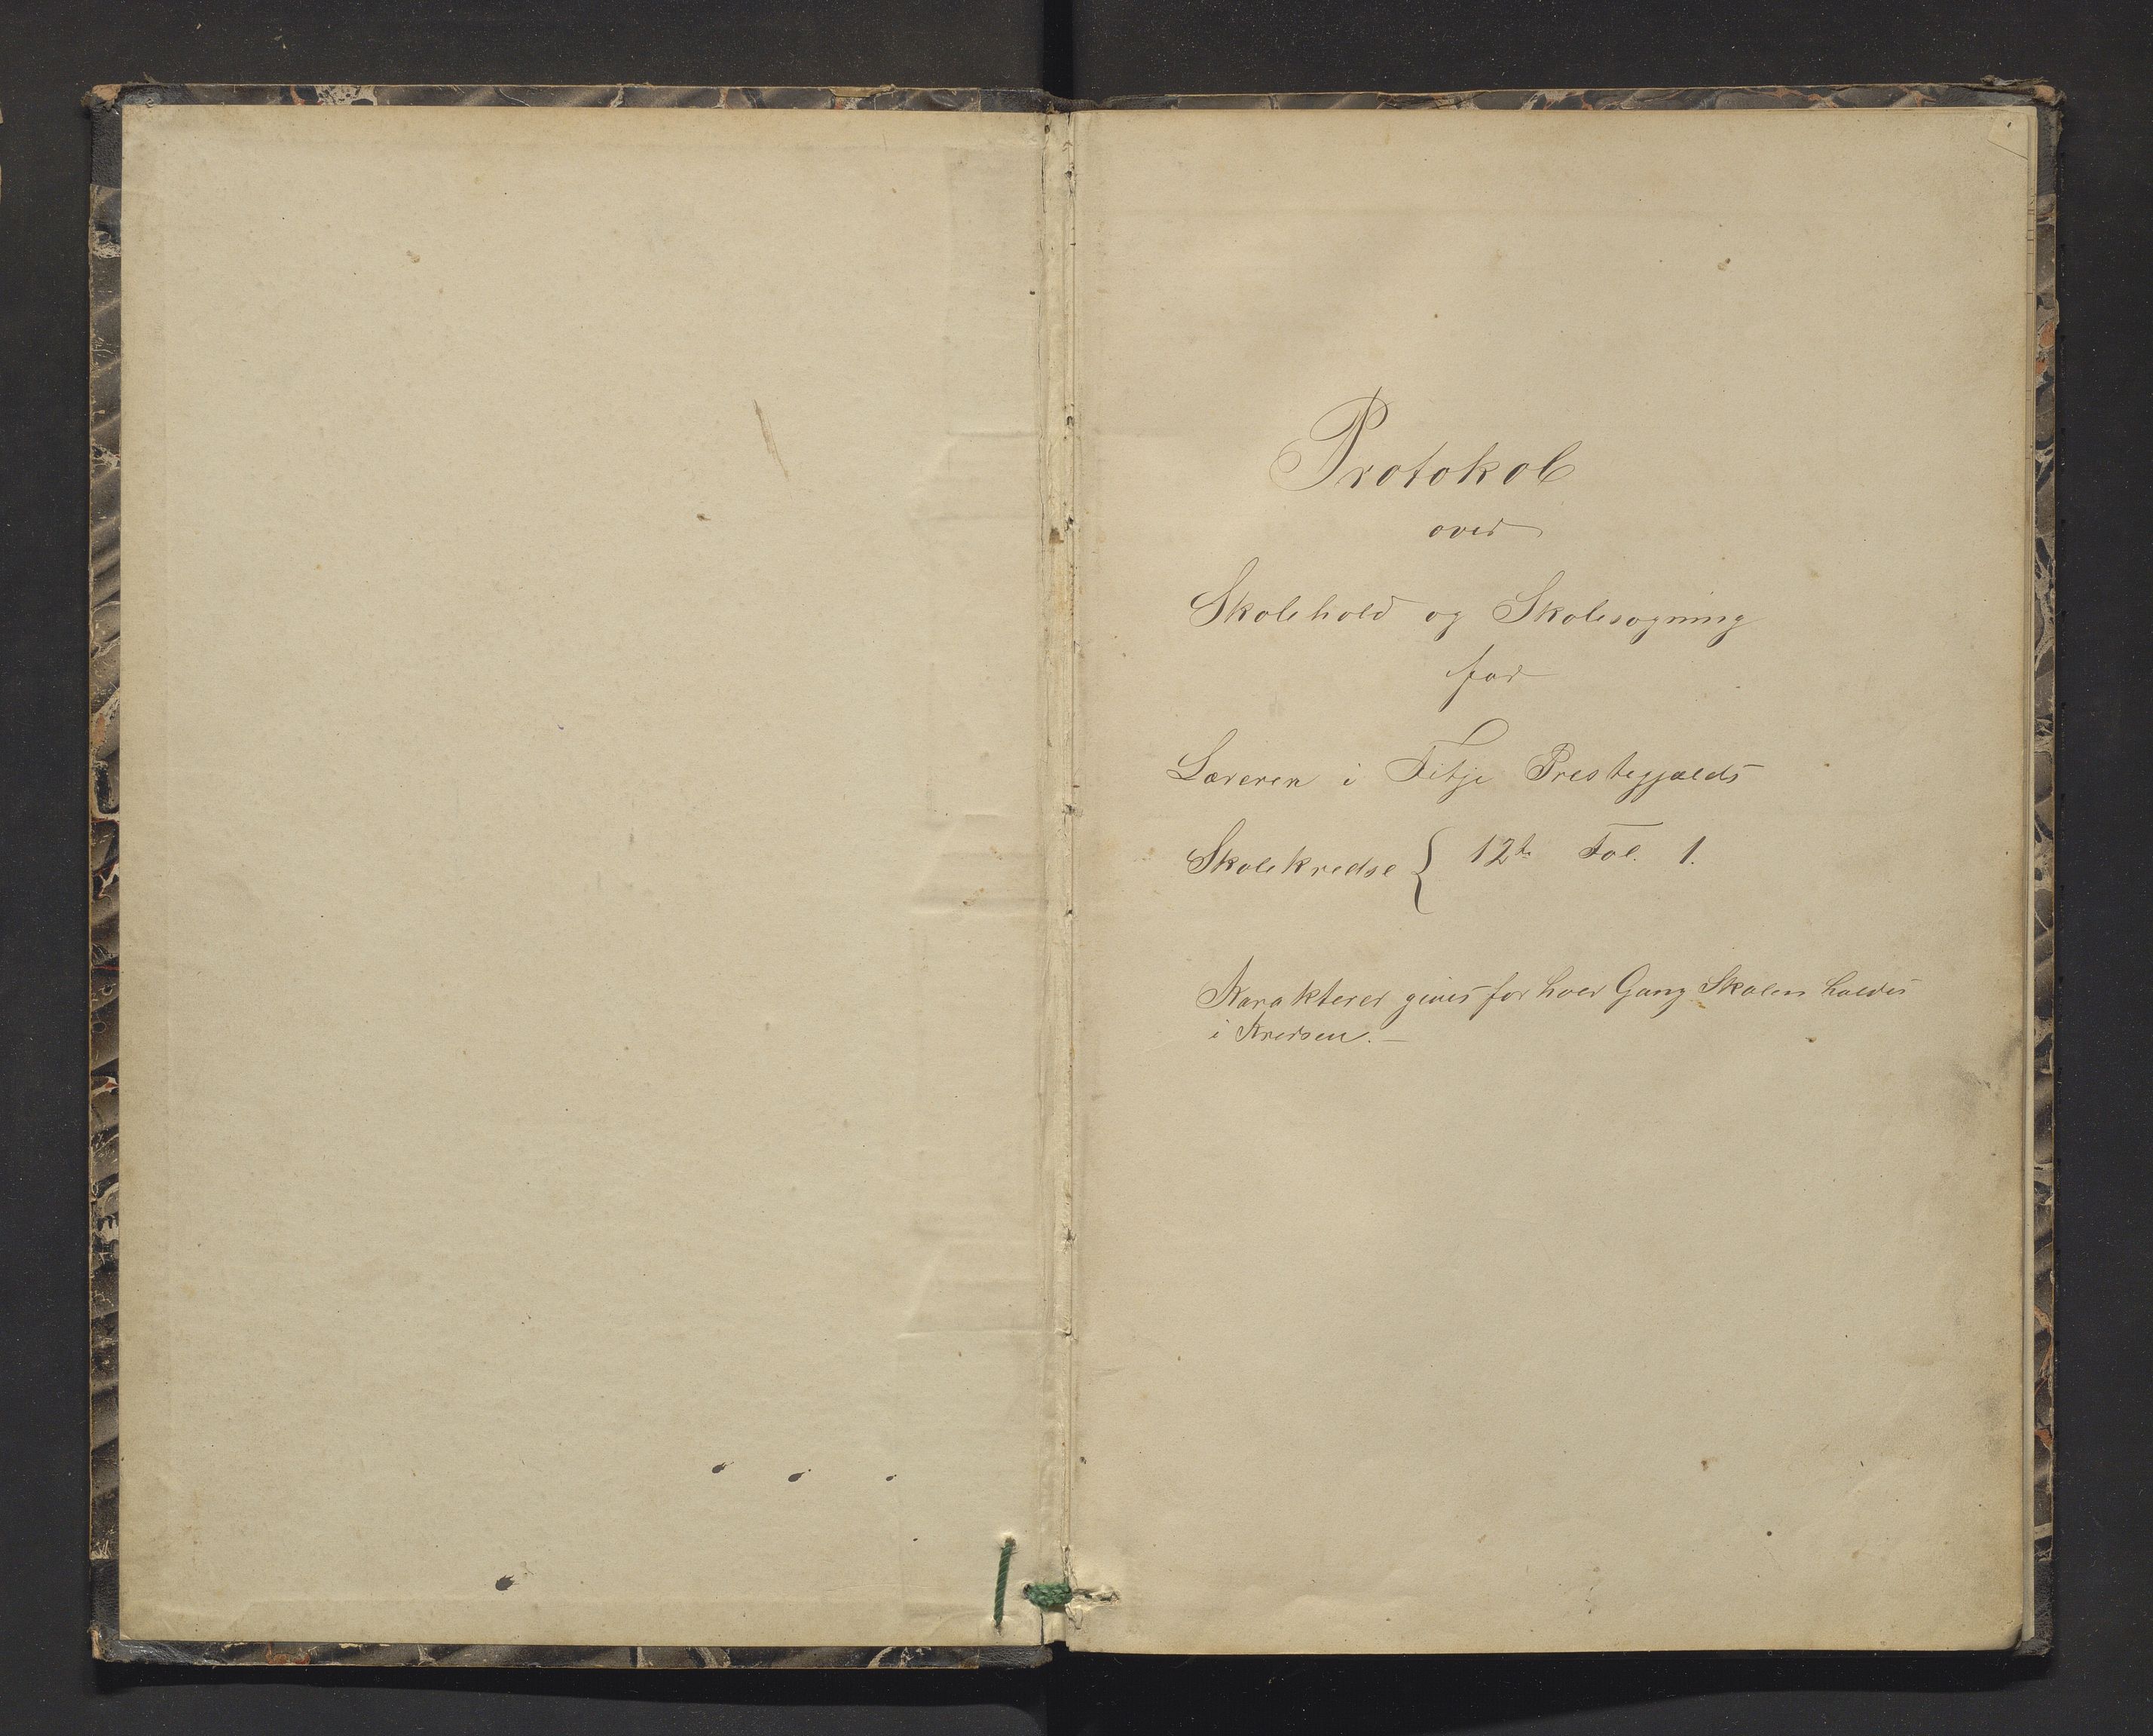 Protokol
over
Skolehold og Skolesøgning
for
Læreren i Fitje Prestegjælds
Skolekredse { 12te Fol. 1.
Karakterer gives for hver Gang Skolen holdes
i Kredsen. —